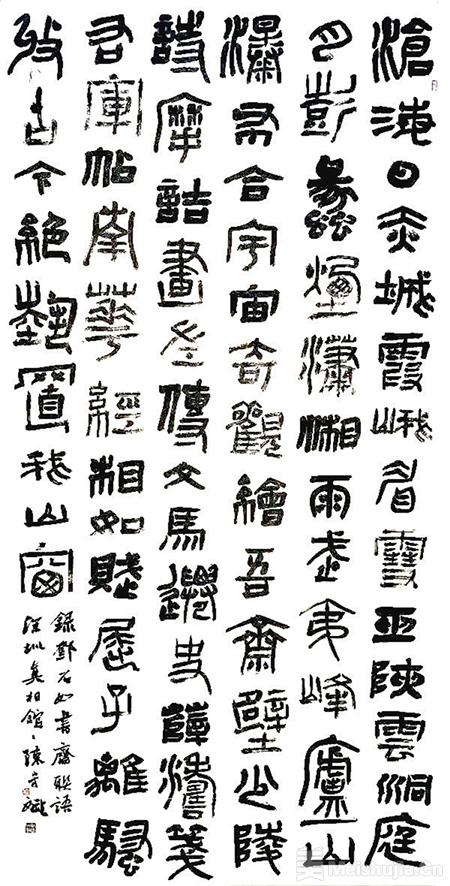 滄海日赤城霞峨眉雪巫陜雲洞庭
月彭蠡煙瀟湘雨武夷峰廬山
瀑布合宇宙奇觀繪吾齋壁少陵
詩摩詰畫左傳文馬遷史薛濤箋
右軍帖南華經相如賦屈子離騷
收古今絕藝置我山窗
錄鄧石如書齋聯語
深圳柏館陳
Meishujia.Cn